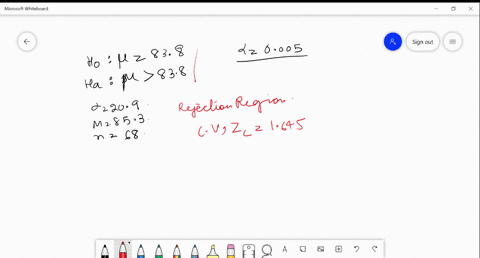 Microsoft Whiteboard
Sign out
H₀ : μ = 83.8
Ha : μ > 83.8
α = 0.005
α = 20.9
M = 85.3
n = 68
Rejection Region.
C.V, Zc = 1.645